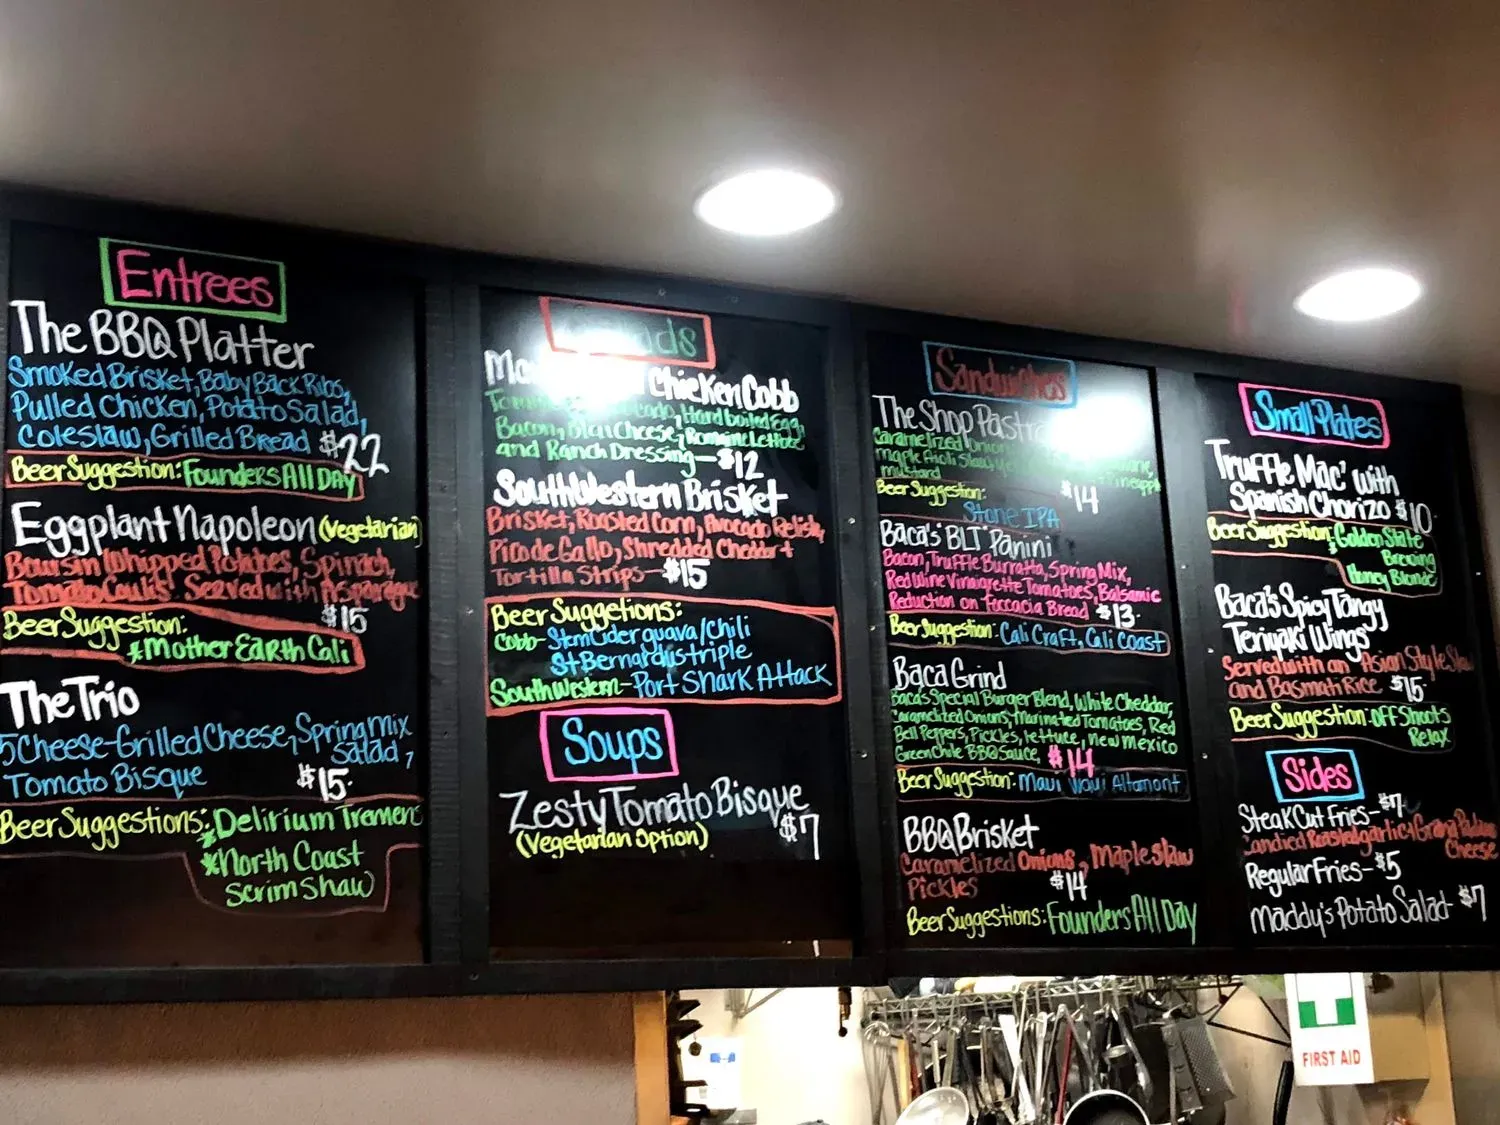 Entrees
The BBQ Platter
Smoked Brisket, Baby Back Ribs,
Pulled Chicken, Potato Salad,
Coleslaw, Grilled Bread $22
Beer Suggestion: Founders All Day
Eggplant Napoleon (Vegetarian)
Boursin Whipped Potatoes, Spinach,
Tomato Coulis. Served with Asparagus
$15
Beer Suggestion:
*Mother Earth Cali
The Trio
5 Cheese-Grilled Cheese, Spring Mix
Salad,
Tomato Bisque $15
Beer Suggestions: *Delirium Tremens
*North Coast
Scrimshaw
Chicken Cobb
Hard boiled Egg,
Bacon, Bleu Cheese, Romaine Lettuce
and Ranch Dressing— $12
SouthWestern Brisket
Brisket, Roasted Corn, Avocado Relish,
Pico de Gallo, Shredded Cheddar +
Tortilla Strips— $15
Beer Suggetions:
Cobb- Stem Cider guava/Chili
St Bernardus triple
SouthWestern- Port Shark Attack
Soups
Zesty Tomato Bisque
(Vegetarian Option) $7
Sandwiches
The Shop
Caramelized
Maple Aioli Slaw,
mustard
$14
Beer Suggestion:
Stone IPA
Baca's BLT Panini
Bacon, Truffle Burratta, Spring Mix,
Red Wine Vinaigrette Tomatoes, Balsamic
Reduction on Foccacia Bread $13
Beer Suggestion: Cali Craft, Cali Coast
Baca Grind
Baca's Special Burger Blend, White Cheddar,
Caramelized Onions, Marinated Tomatoes, Red
Bell Peppers, Pickles, lettuce, new mexico
Green Chile BBQ Sauce, $14
Beer Suggestion: Maui Waui Altamont
BBQ Brisket
Caramelized Onions, Maple Slaw
Pickles $14
Beer Suggestions: Founders All Day
Small Plates
Truffle Mac' with
Spanish Chorizo $10
Beer Suggestion: Golden State
Brewing
Honey Blonde
Baca's Spicy Tangy
Teriyaki Wings
Served with an Asian Style Slaw
and Basmati Rice $15
Beer Suggestion: Offshoots
Relax
Sides
Steak Cut Fries- $7
Candied Roasted garlic + Grana Padano
Cheese
Regular Fries- $5
Maddy's Potato Salad- $7
FIRST AID